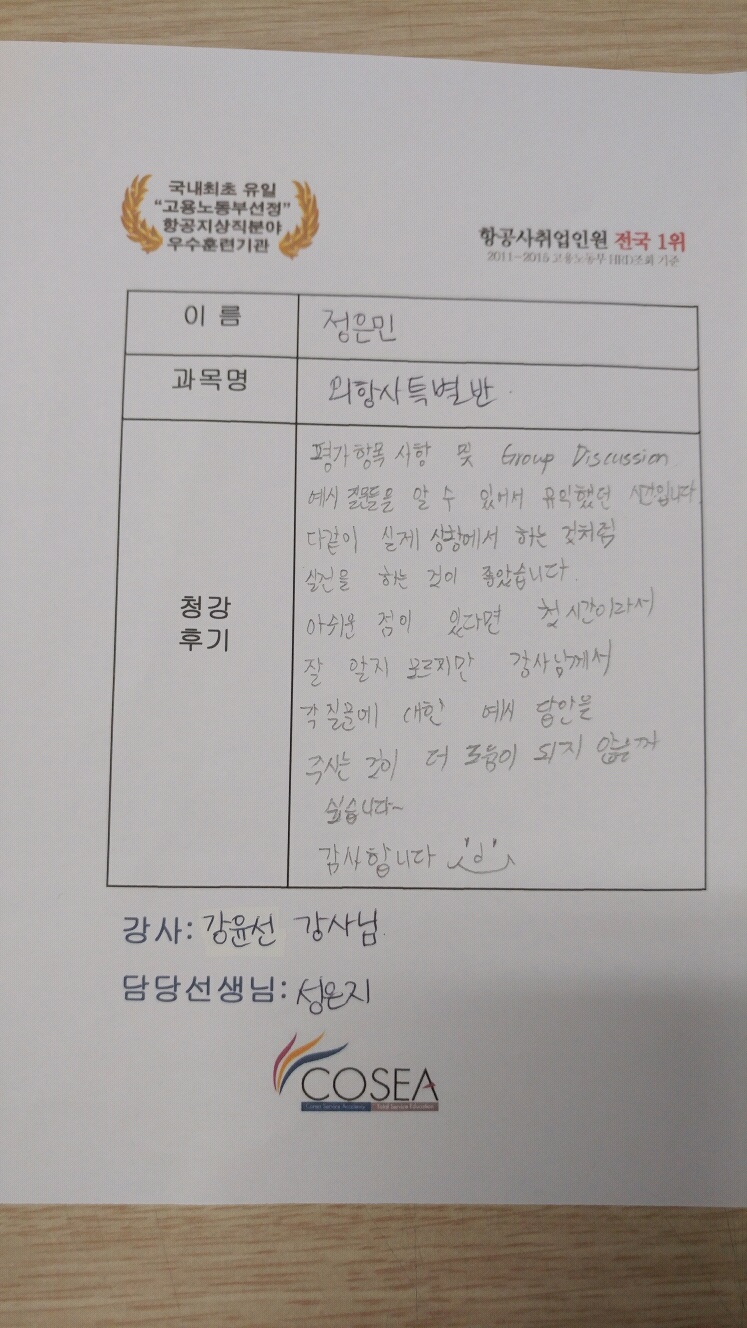 국내최초 유일
"고용노동부선정"
항공지상직분야
우수훈련기관
항공사취업인원 전국 1위
2011~2015 고용노동부 HRD조회 기준
이 름
정은민
과목명
외항사특별반.
청강
후기
평가항목 사항 및 Group Discussion
예시 질문들을 알 수 있어서 유익했던 시간입니다.
다같이 실제 상황에서 하는 것처럼
실전을 하는 것이 좋았습니다.
아쉬운 점이 있다면 첫 시간이라서
잘 알지 모르지만 강사님께서
각 질문에 대한 예시 답안을
주시는 것이 더 도움이 되지 않을까
싶습니다~
감사합니다
강사: 강윤선 강사님.
담당선생님: 성은지
COSEA
Korea Service Academy Total Service Education